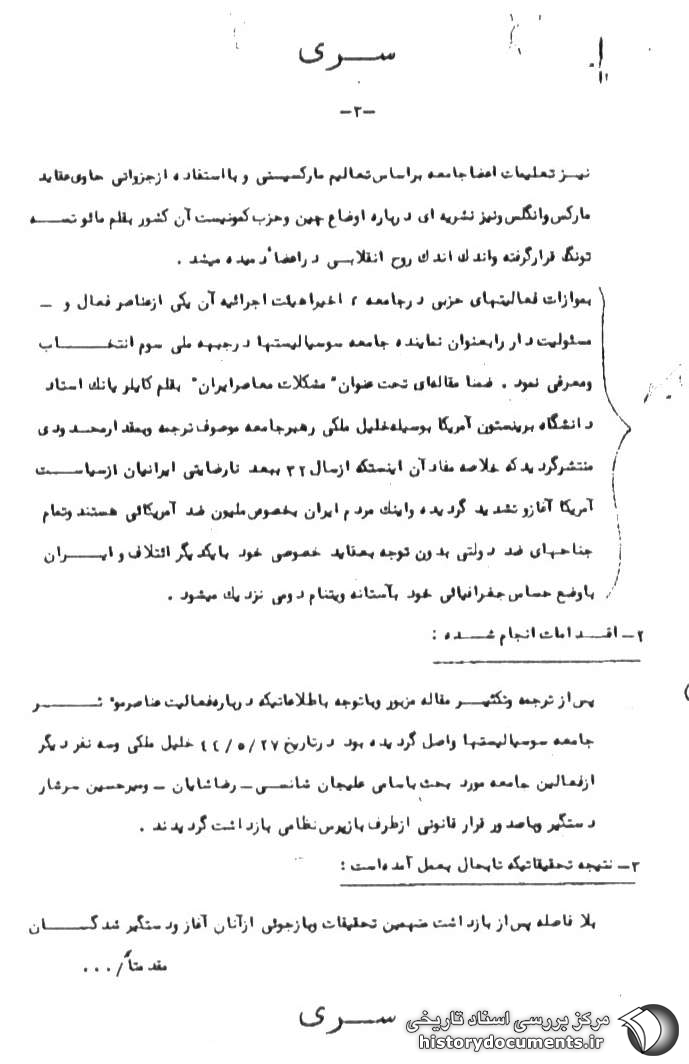 ســری
-۳-
نیــز تعلیمات اعضا جامعه براساس تعالیم مارکسیستی و با استفاده از جزواتی حاوی عقاید
مارکس و انگلس و نیز نشریه ای درباره اوضاع چین و حزب کمونیست آن کشور بقلم مائو تســه
تونگ قرار گرفته و اندك اندك روح انقلابــی در اعضاء دمیده میشد .
بموازات فعالیتهای حزبی در جامعه ، اخیرا هیئت اجرائیه آن یکی از عناصر فعال و ـ
مسئولیت دار را بعنوان نماینده جامعه سوسیالیستها در جبهه ملی سوم انتخــــاب
و معرفی نمود . ضمنا مقاله‌ای تحت عنوان " مشکلات معاصر ایران " بقلم کایلر یانك استاد
دانشگاه پرینستون آمریکا بوسیله خلیل ملکی رهبر جامعه موصوف ترجمه و بمقدار محــدودی
منتشر گردید که خلاصه مفاد آن اینستکه از سال ۳۲ ببعد نارضایتی ایرانیان از سیاســت
آمریکا آغاز و تشدید گردیده و اینك مردم ایران بخصوص ملیون ضد آمریکائی هستند و تمام
جناحهای ضد دولتی بدون توجه بعقاید خصوصی خود با یکدیگر ائتلاف و ایــــران
با وضع حساس جغرافیائی خود بآستانه ویتنام دومی نزدیك میشود .
۲ـ اقــدامات انجام شــده :
پس از ترجمه و تکثیــر مقاله مزبور و با توجه باطلاعاتیکه درباره فعالیت عناصر موثــــر
جامعه سوسیالیستها واصل گردیده بود در تاریخ ۴۴/۵/۲۷ خلیل ملکی و سه نفر دیگر
از فعالین جامعه مورد بحث باسامی علیجان شانســی ـ رضا شایان ـ و میرحسین سرشار
دستگیر و با صدور قرار قانونی از طرف بازپرس نظامی بازداشت گردیدند .
۳ـ نتیجه تحقیقاتیکه تا بحال بعمل آمده است :
بلا فاصله پس از بازداشت متهمین تحقیقات و بازجوئی از آنان آغاز و دستگیر شدگــــان
مقدمتاً / ...
ســری
مرکز بررسی اسناد تاریخی
historydocuments.ir